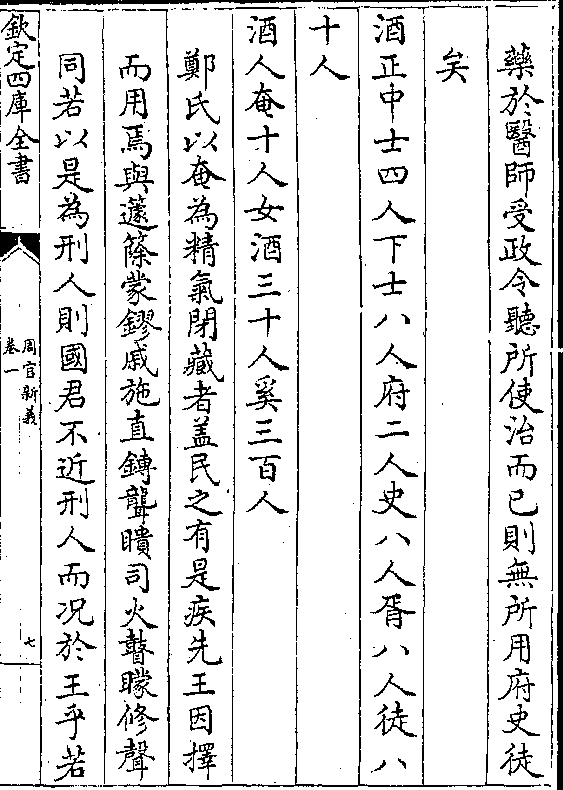 藥於醫師受政令聽所使治而已則無所用府史徒
矣
酒正中士四人下士八人府二人史八人胥八人徒八
十人
酒人奄十人女酒三十人奚三百人
鄭氏以奄為精氣閉藏者盖民之有是疾先王因擇
而用焉與蘧篨蒙鏐戚施直鏄聾聵司火瞽矇修聲
同若以是為刑人則國君不近刑人而况於王乎若
欽定四庫全書
周官新義
卷一
七